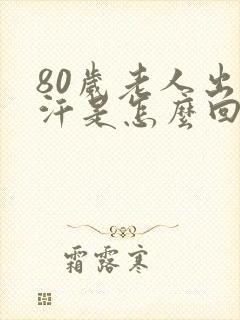 80歲老人出
汗是怎麼回
霜露寒